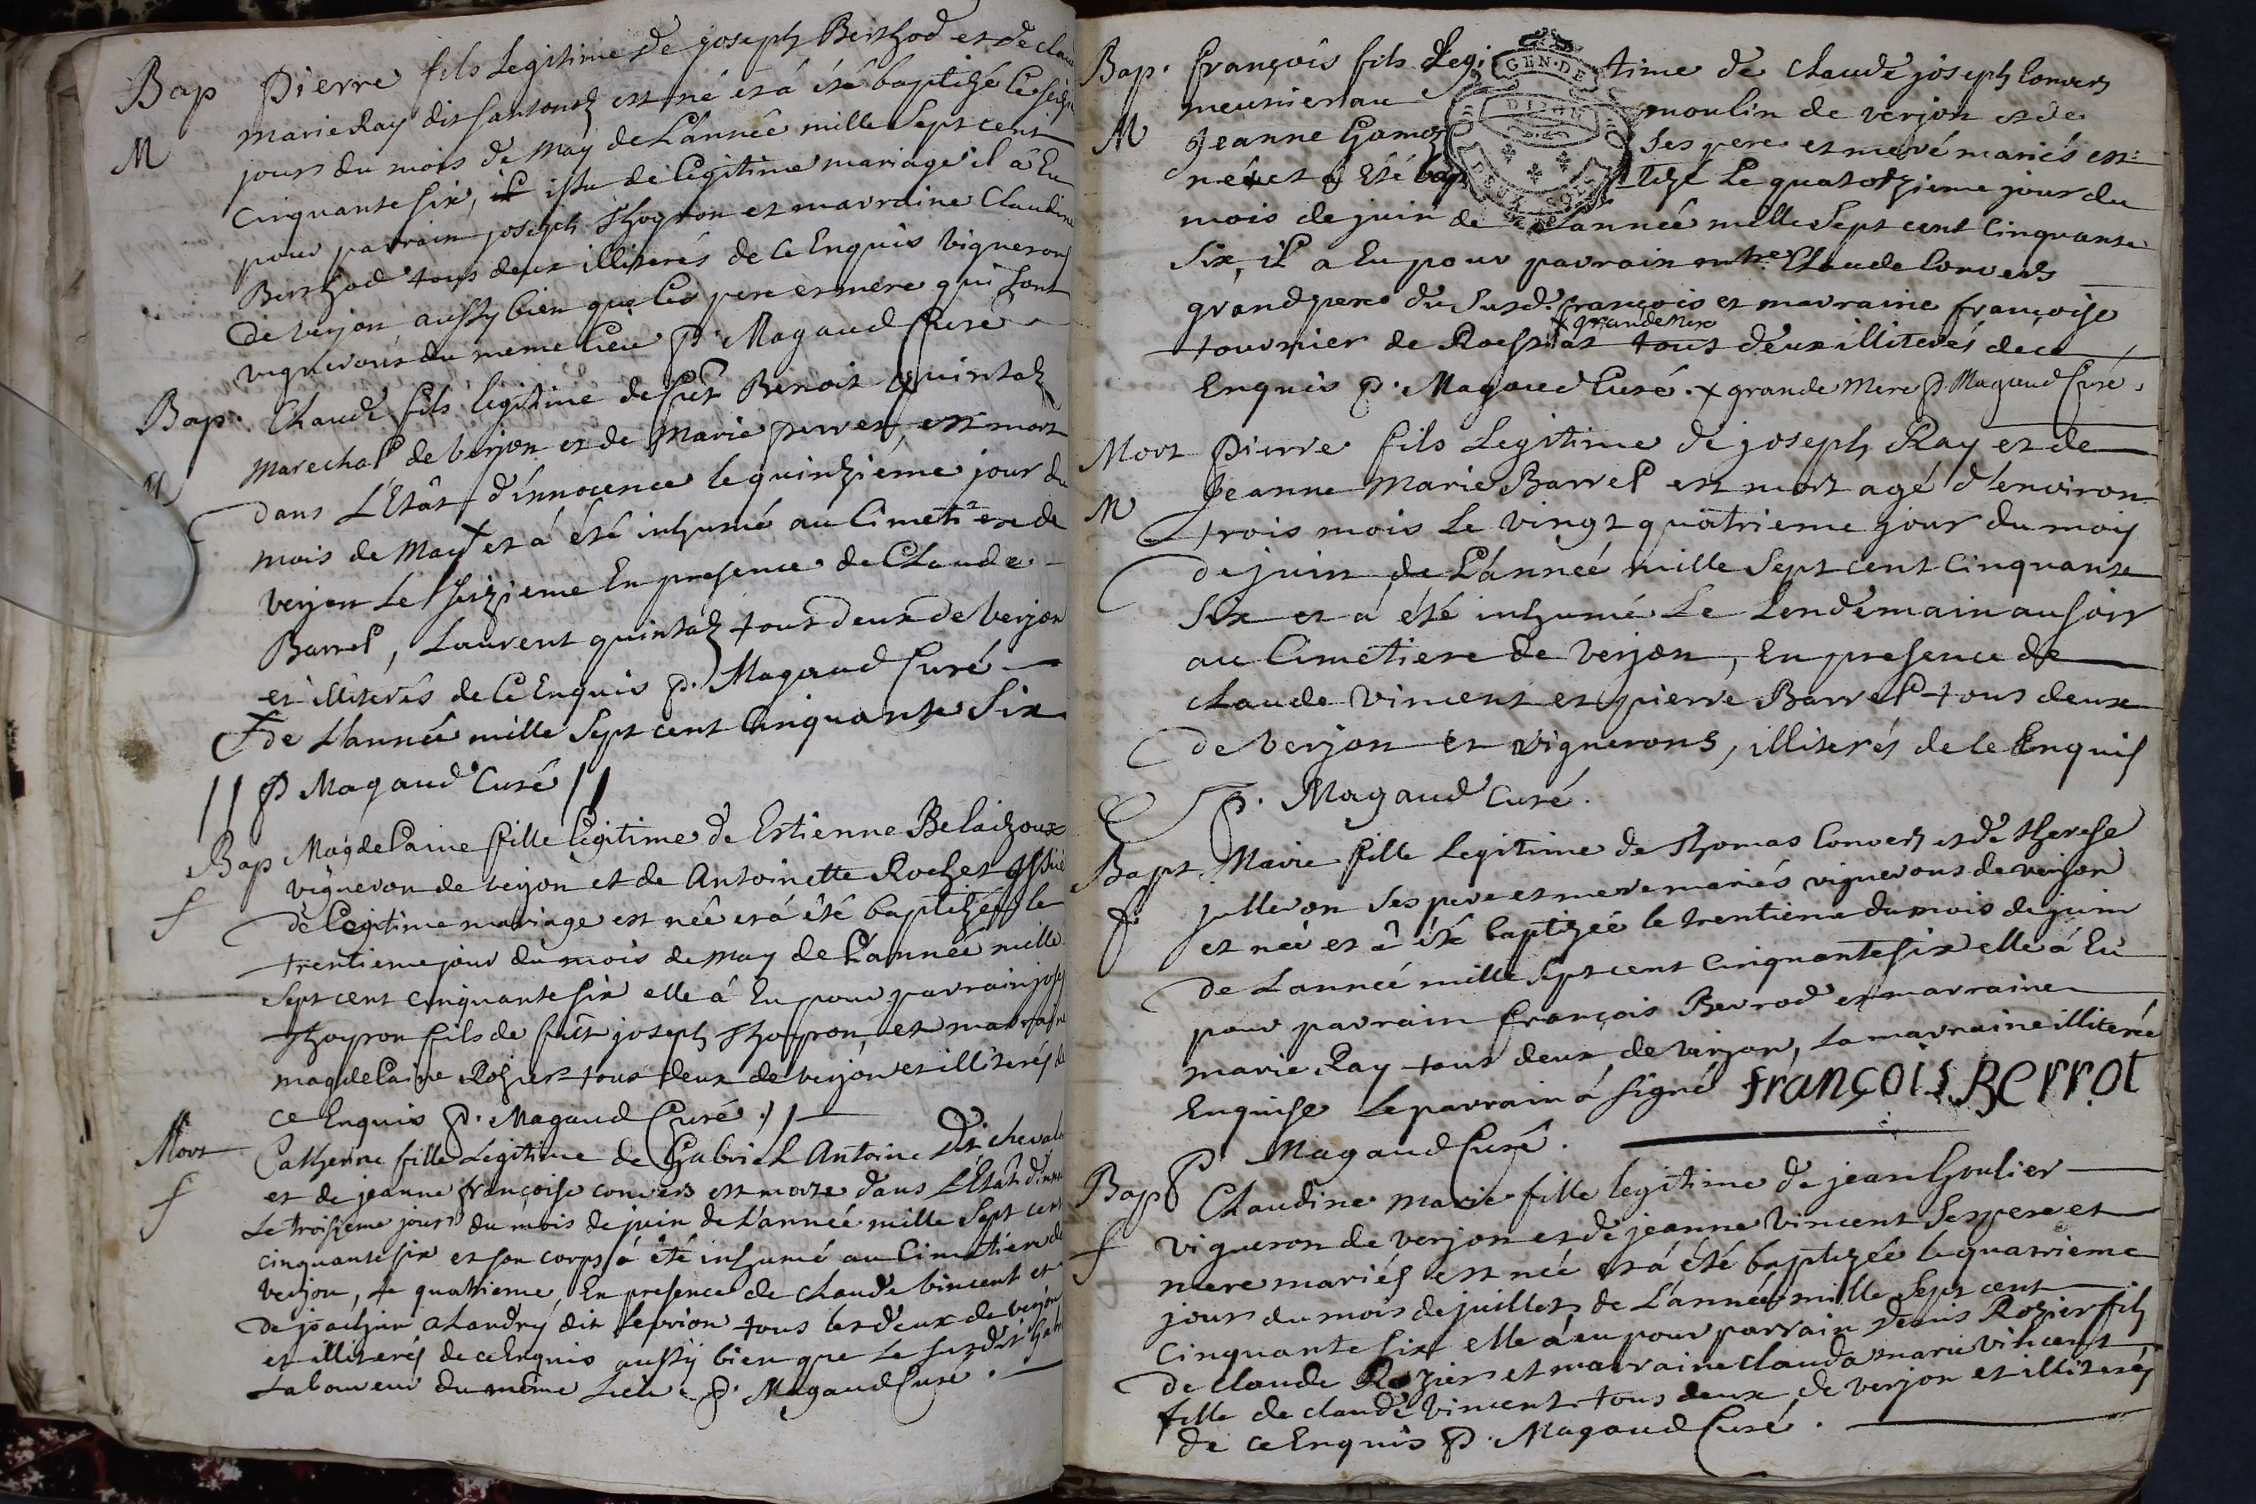 Bap Pierre fils Legitime de joseph Berthod et de
marie Ray dit est né et a été baptizé le
M
jour du mois de may de L'année mille Sept cent
cinquante six, issu de legitime mariage il á Eu
pour parrain joseph Thoyron et marraine Claudine
Berthod tous deux illiterés de ce Enquis vignerons
de verjon aussy bien que les pere et mere qui sont
vignerons du meme lieu P. Magaud Curé
Bap. Claude fils legitime de Benoit quintal
Marechal de verjon et de Marie perret, est mort
M
dans L'Etât d'innocence le quinziéme jour du
mois de May + et á été inhumé au Cimetiere de
verjon Le seizieme En presence de Claude
Barrel, Laurent quintal tous deux de verjon
et illiterés de ce Enquis P. Magaud Curé
+ de L'année mille Sept cent cinquante Six
// P Magaud Curé //
Bap Magdelaine fille legitime de Estienne
vigneron de verjon et de Antoinette Rochet
f
de Legitime mariage est née et á été baptizée le
trentieme jour du mois de may de L'année mille
Sept cent cinquante six elle á Eu pour parrain
Thoyron fils de joseph Thoyron, et marraine
magdelaine Rozier tous deux de verjon et illiterés de
ce Enquis P. Magaud Curé. //
Mort Catherine fille Legitime de Gabriel Antoine Dit
f
et de jeanne françoise convers est morte dans L'Etât
Le troisieme jour du mois de juin de L'année mille Sept cent
cinquante six et son corps á été inhumé au Cimetiere de
verjon, Le quatrieme En presence de claude vincent et
de joachim dit tous les deux de verjon
et illiterés de ce Enquis aussy bien que Le susdit
Laboureur du même Lieu. P. Magaud Curé.
Bap. françois fils Legitime de claude joseph Convers
meunier au moulin de verjon et de
M
Jeanne ses pere et mere mariés est
né et a Eté baptizé Le quatorzieme jour du
mois de juin de L'année mille Sept cent cinquante
Six, il a Eu pour parrain Claude Convers
grand pere du Susd. françois et marraine françoise
x grande Mere
tournier de tous deux illiterés de ce
Enquis P. Magaud Curé. x grande Mere P Magaud Curé.
Mort Pierre fils Legitime de joseph Ray et de
Jeanne Marie Barrel est mort agé d'environ
M
trois mois Le vingt quatrieme jour du mois
de juin de L'année mille Sept cent cinquante
Six et á été inhumé Le Lendemain au soir
au Cimetiere de verjon, En presence de
claude vincent et pierre Barrel tous deux
de verjon et vignerons, illiterés de ce Enquis
P. Magaud Curé.
Bapt. Marie fille Legitime de Thomas Convers et de therese
julleron ses pere et mere mariés vignerons de verjon
f
et née et á été baptizée le trentieme du mois de juin
de L'année mille Sept cent cinquante six elle á Eu
pour parrain françois Berrod et marraine
marie Ray tous deux de verjon, La marraine illiterée
Enquise Le parrain á signé françois BERROt
P. Magaud Curé.
Bap Claudine marie fille legitime de jean Goulier
f
vigneron de verjon et de jeanne vincent Ses pere et
mere mariés est née et á été baptizée le quatrieme
jour du mois de juillet de L'année mille Sept cent
Cinquante six elle á eu pour parrain denis Rozier fils
de claude Rozier et marraine clauda marie vincent
fille de claude vincent tous deux de verjon et illiterés
de ce Enquis P. Magaud Curé.
GEN. DE
DIJON